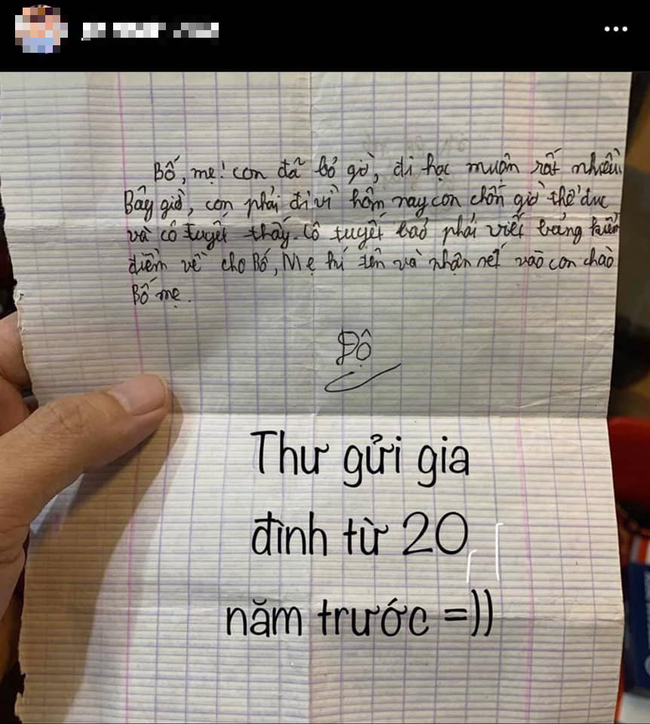 Bố, mẹ! con đã bỏ giờ, đi học muộn rất nhiều.
Bây giờ, con phải đi vì hôm nay con chốn giờ thể dục
và cô tuyết thấy. Cô tuyết baỏ phải viết bảng kiểm
điểm về cho Bố, Mẹ kí tên và nhận nét vào con chào
Bố mẹ.
Độ
Thư gửi gia
đình từ 20
năm trước =))